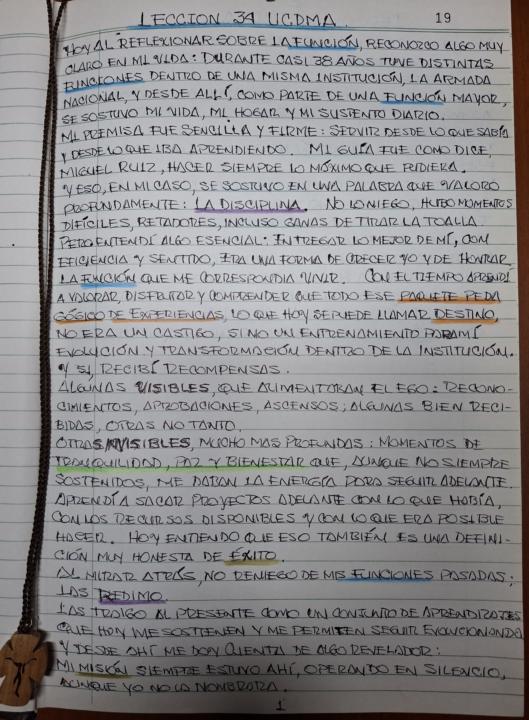 LECCION 34 UCDMA.
19
HOY AL REFLEXIONAR SOBRE LA FUNCIÓN, RECONOZCO ALGO MUY
CLARO EN MI VIDA: DURANTE CASI 38 AÑOS TUVE DISTINTAS
FUNCIONES DENTRO DE UNA MISMA INSTITUCIÓN, LA ARMADA
NACIONAL, Y DESDE ALLÍ, COMO PARTE DE UNA FUNCIÓN MAYOR,
SE SOSTUVO MI VIDA, MI HOGAR Y MI SUSTENTO DIARIO.
MI PREMISA FUE SENCILLA Y FIRME: SERVIR DESDE LO QUE SABÍA
Y DESDE LO QUE IBA APRENDIENDO. MI GUÍA FUE COMO DICE,
MIGUEL RUIZ, HACER SIEMPRE LO MÁXIMO QUE PUDIERA.
Y ESO, EN MI CASO, SE SOSTUVO EN UNA PALABRA QUE VALORO
PROFUNDAMENTE: LA DISCIPLINA. NO LO NIEGO, HUBO MOMENTOS
DIFÍCILES, RETADORES, INCLUSO GANAS DE TIRAR LA TOALLA.
PERO ENTENDÍ ALGO ESENCIAL: ENTREGAR LO MEJOR DE MÍ, CON
EFICIENCIA Y SENTIDO, ERA UNA FORMA DE CRECER YO Y DE HONRAR
LA FUNCIÓN QUE ME CORRESPONDIA VIVIR. CON EL TIEMPO APRENDÍ
A VALORAR, DISFRUTAR Y COMPRENDER QUE TODO ESE PAQUETE PEDA
GÓGICO DE EXPERIENCIAS, LO QUE HOY SE PUEDE LLAMAR DESTINO,
NO ERA UN CASTIGO, SI NO UN ENTRENAMIENTO PARA MÍ
EVOLUCIÓN Y TRANSFORMACIÓN DENTRO DE LA INSTITUCIÓN.
Y SI, RECIBÍ RECOMPENSAS.
ALGUNAS VISIBLES, QUE ALIMENTABAN EL EGO: RECONO-
CIMIENTOS, APROBACIONES, ASCENSOS; ALGUNAS BIEN RECI-
BIDAS, OTRAS NO TANTO.
OTRAS INVISIBLES, MUCHO MAS PROFUNDAS: MOMENTOS DE
TRANQUILIDAD, PAZ Y BIENESTAR QUE, AUNQUE NO SIEMPRE
SOSTENIDOS, ME DABAN LA ENERGÍA PARA SEGUIR ADELANTE.
APRENDÍ A SACAR PROYECTOS ADELANTE CON LO QUE HABÍA,
CON LOS RECURSOS DISPONIBLES Y CON LO QUE ERA POSIBLE
HACER. HOY ENTIENDO QUE ESO TAMBIÉN ES UNA DEFINI-
CIÓN MUY HONESTA DE ÉXITO.
AL MIRAR ATRÁS, NO RENIEGO DE MIS FUNCIONES PASADAS;
LAS REDIMO.
LAS TRAIGO AL PRESENTE COMO UN CONJUNTO DE APRENDIZAJES
QUE HOY ME SOSTIENEN Y ME PERMITEN SEGUIR EVOLUCIONANDO
Y DESDE AHÍ ME DOY CUENTA DE ALGO REVELADOR:
MI MISIÓN SIEMPRE ESTUVO AHÍ, OPERANDO EN SILENCIO,
AUNQUE YO NO LA NOMBRARA.
1